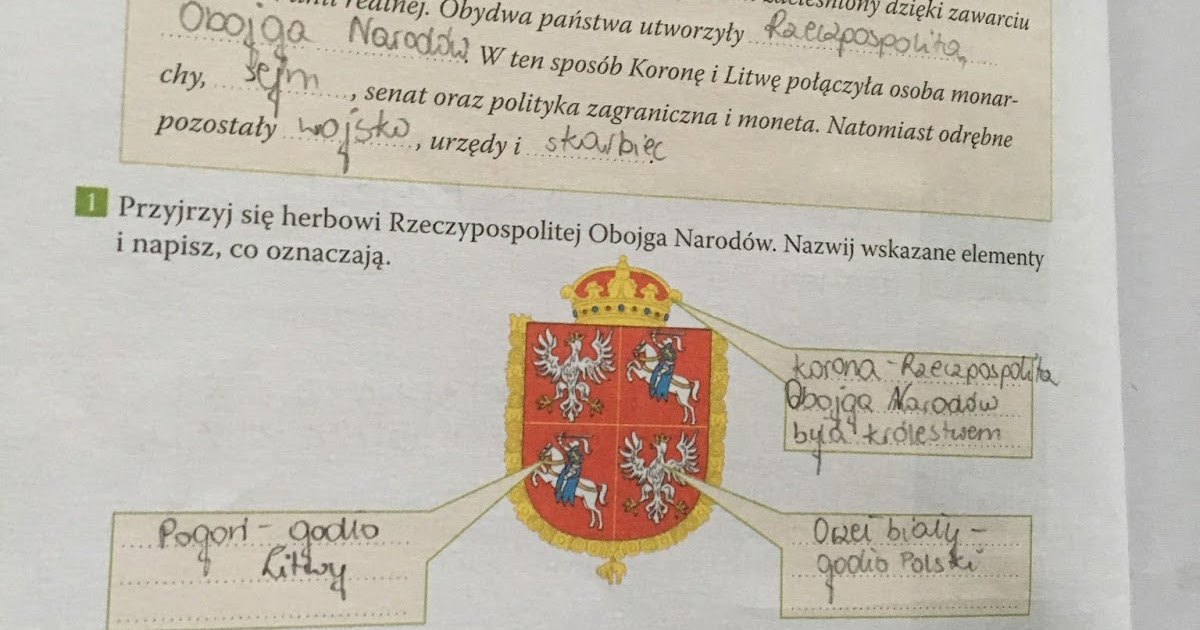 realnej. Obydwa państwa utworzyły Rzeczpospolitą zacieśniony dzięki zawarciu
Obojga Narodów. W ten sposób Koronę i Litwę połączyła osoba monar-
chy, sejm, senat oraz polityka zagraniczna i moneta. Natomiast odrębne
pozostały wojsko, urzędy i skarbiec
1 Przyjrzyj się herbowi Rzeczypospolitej Obojga Narodów. Nazwij wskazane elementy
i napisz, co oznaczają.
korona - Rzeczpospolita
Obojga Narodów
była królestwem
Pogoń - godło
Litwy
Orzeł biały -
godło Polski